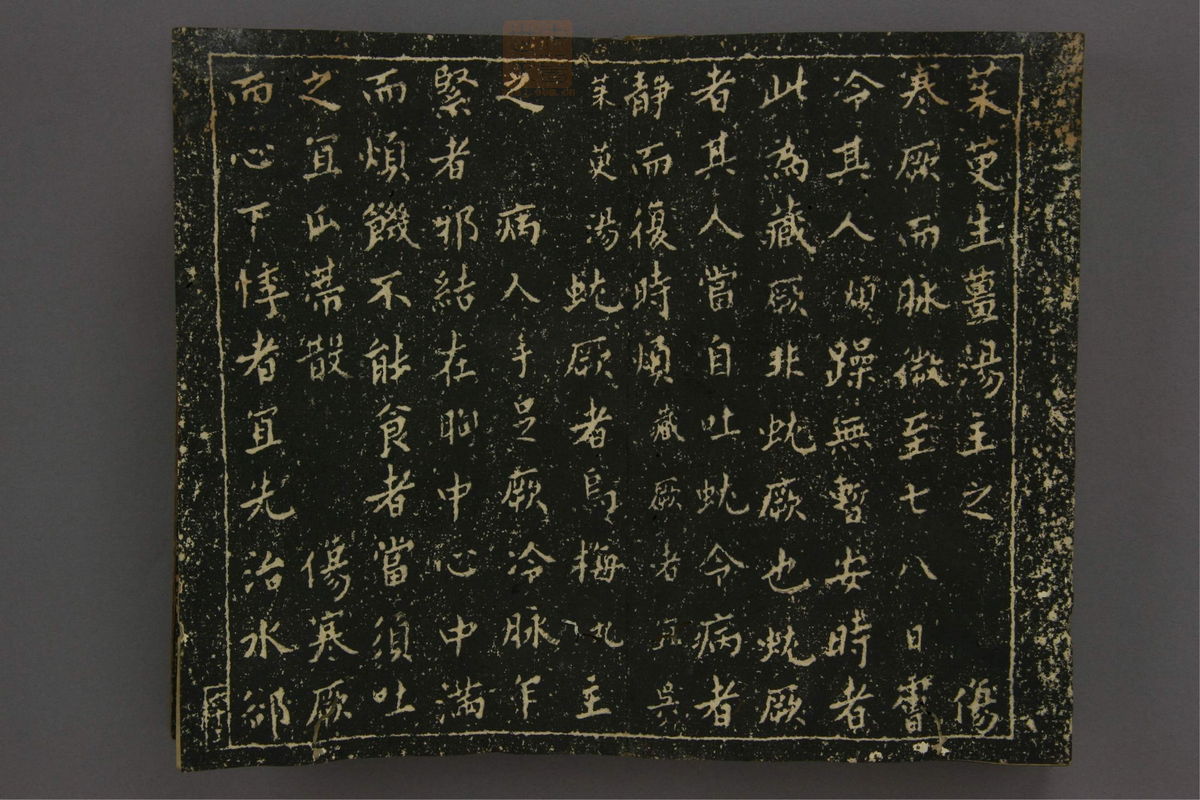 茱萸生薑湯主之　傷
寒厥而脉微至七八日膚
冷其人煩躁無暫安時者
此為藏厥非蚘厥也蚘厥
者其人當自吐蚘令病者
靜而復時煩藏厥者宜吳
茱萸湯蚘厥者烏梅丸主
之　病人手足厥冷脉乍
緊者邪結在胸中心中滿
而煩饑不能食者當須吐
之宜瓜蒂散　傷寒厥
而心下悸者宜先治水卻